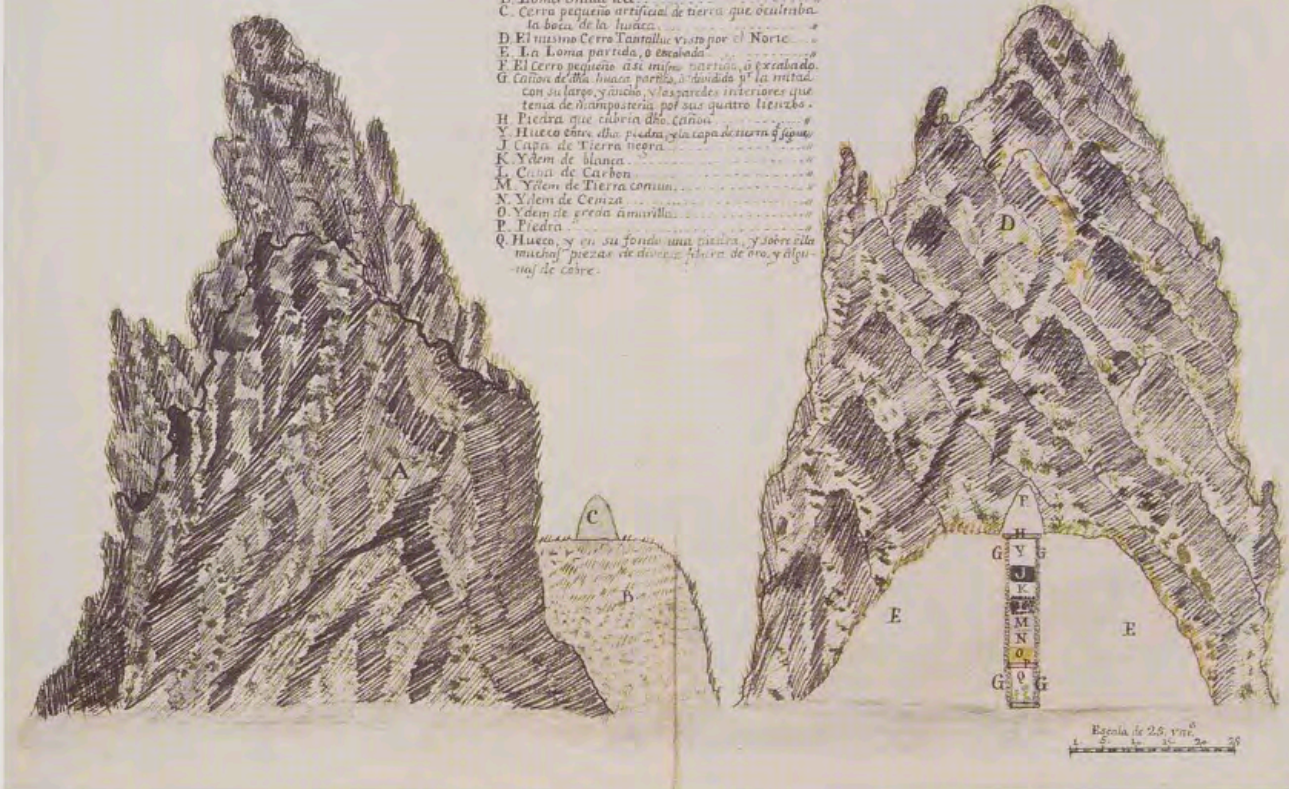 C. Cerro pequeño artificial de tierra que ocultaba
la boca de la huaca
D. El mismo Cerro Tantalluc visto por el Norte
E. La Loma partida, o escabada
F. El Cerro pequeño asi mismo partido, ó excabado.
G. Cañon de dha huaca partido, ó dividido pr. la mitad
con su largo, y ancho, y las paredes interiores que
tenia de mamposteria por sus quatro lienzos.
H. Piedra que cubria dho. cañon
Y. Hueco entre dha piedra, y la capa de tierra q sigue
J. Capa de Tierra negra
K. Ydem de blanca
L. Capa de Carbon
M. Ydem de Tierra comun
N. Ydem de Ceniza
O. Ydem de greda amarilla
P. Piedra
Q. Hueco, y en su fondo una piedra, y sobre ella
muchas piezas de diversa figura de oro, y algu-
nas de cobre.
A
C
B
D
F
H
G Y G
J
K
L
M
N
O
P
Q
G G
E E
Escala de 25. vars.
1 5 10 15 20 25